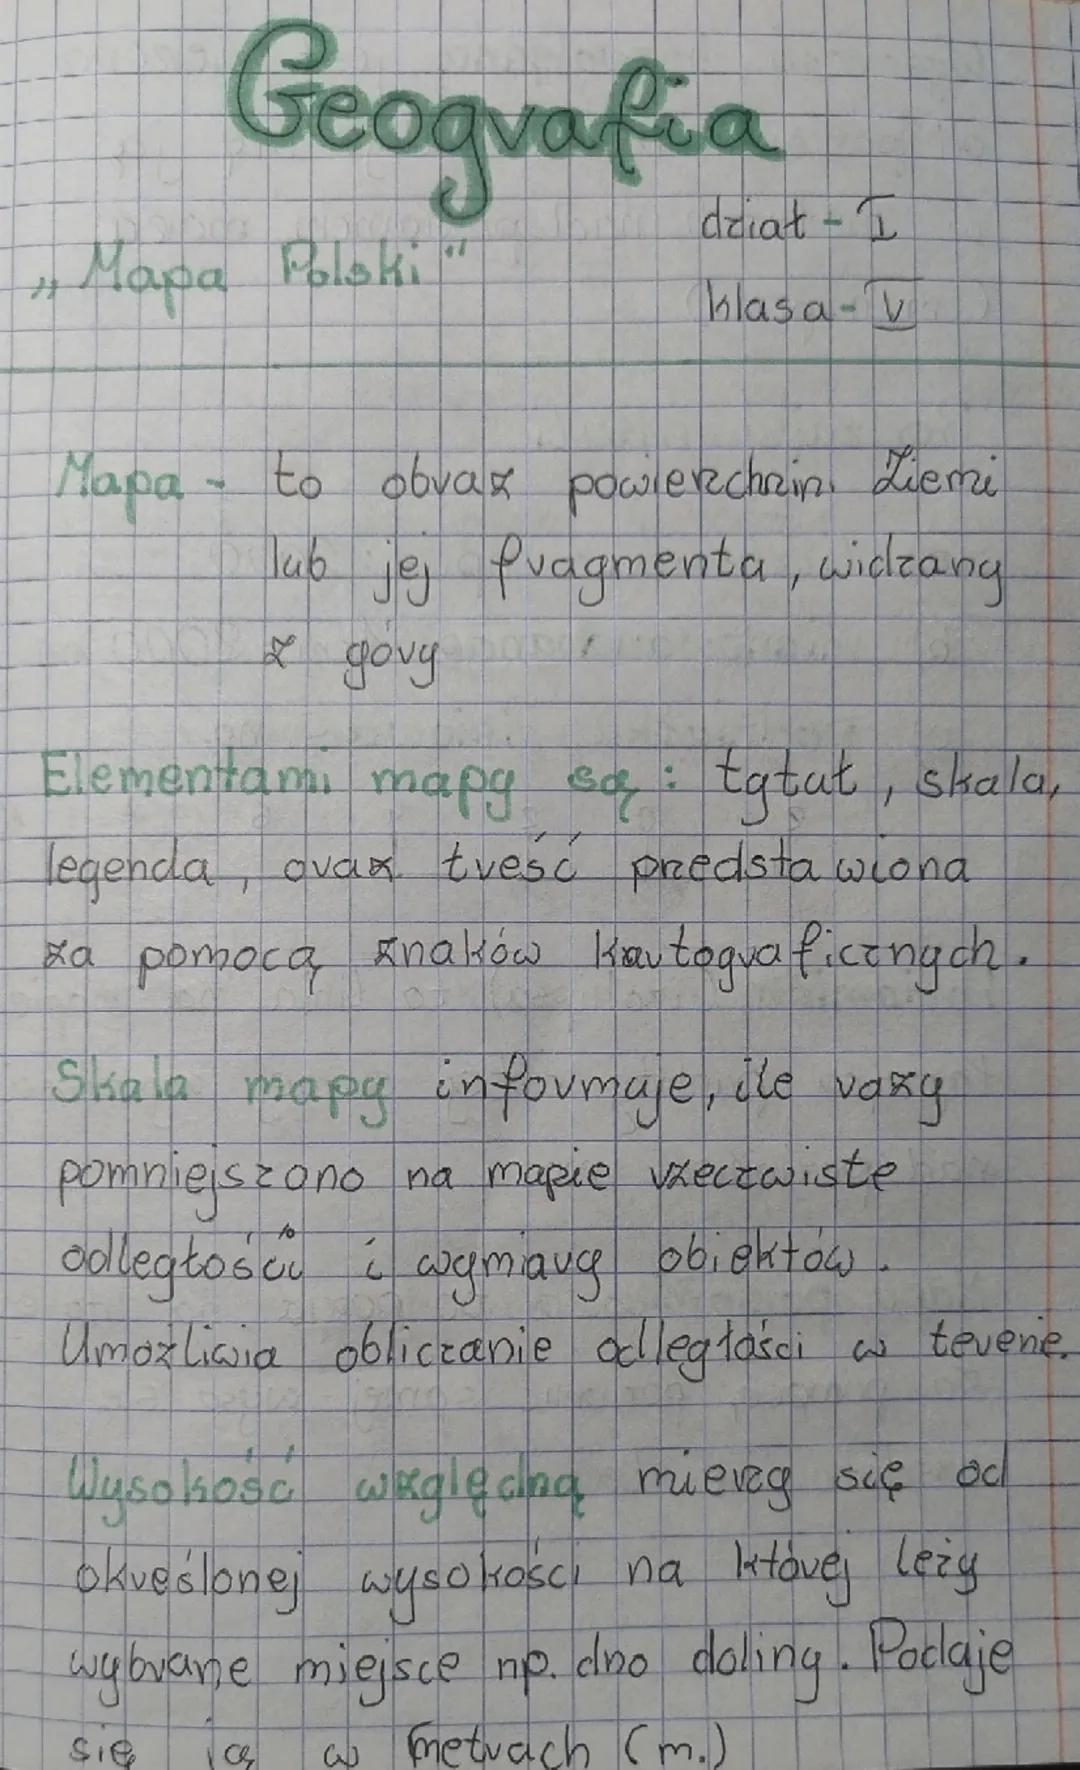 Geografia
dział - I
„Mapa Polski"
klasa - V
Mapa - to obraz powierzchni Ziemi
lub jej fragmentu, widziany
z góry
Elementami mapy są: tytuł, skala,
legenda, oraz treść przedstawiona
za pomocą znaków kartograficznych.
Skala mapy informuje, ile razy
pomniejszono na mapie rzeczwiste
odległości i wymiary obiektów.
Umożliwia obliczanie odległości w terenie.
Wysokość względną mierzy się od
określonej wysokości na której leży
wybrane miejsce np. dno doliny. Podaje
się ją w metrach (m.)